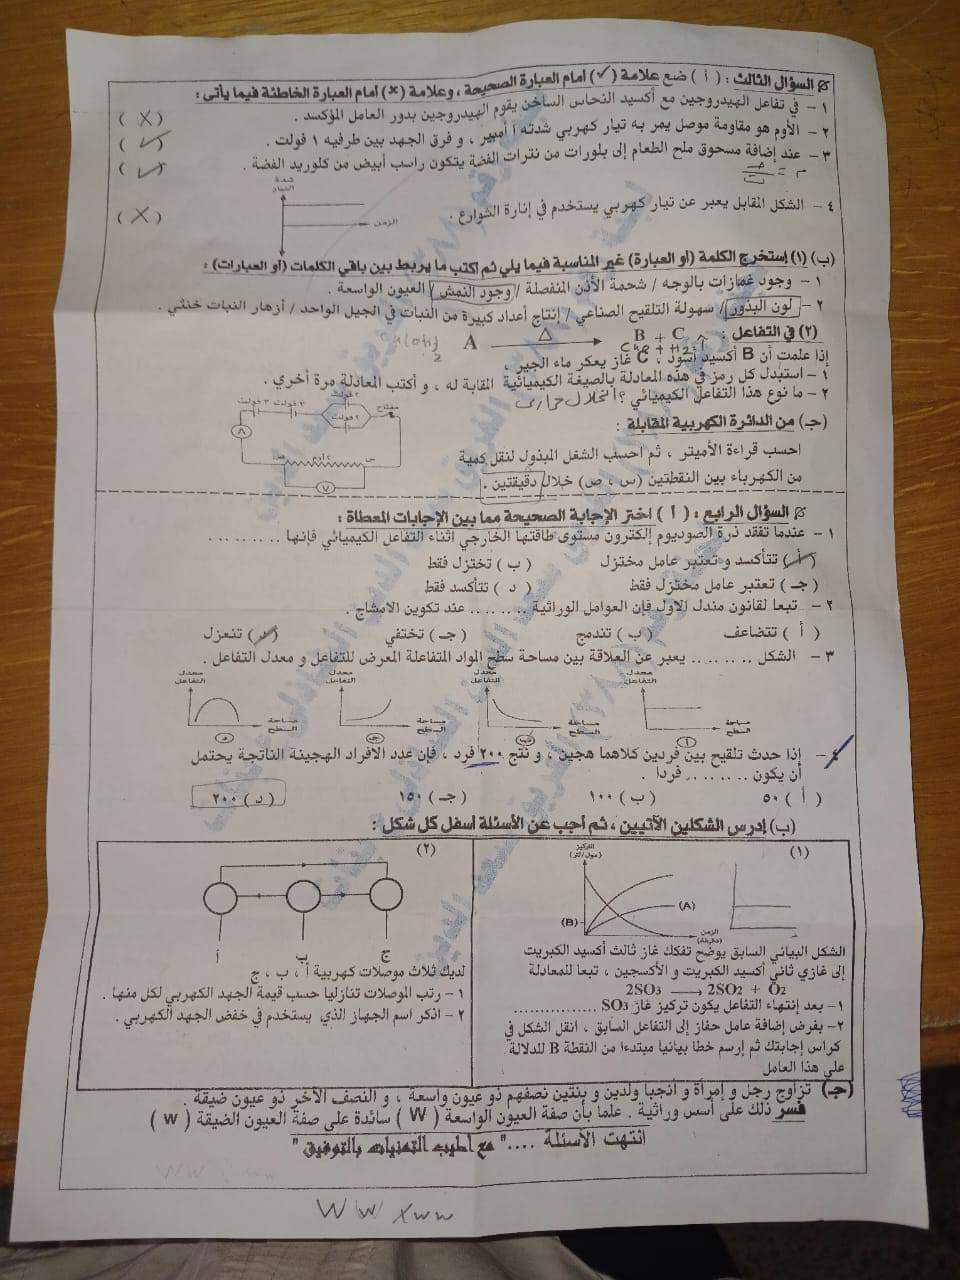 السؤال الثالث : ( أ ) ضع علامة (✓) أمام العبارة الصحيحة ، وعلامة (×) أمام العبارة الخاطئة فيما يأتى :
١ - في تفاعل الهيدروجين مع أكسيد النحاس الساخن يقوم الهيدروجين بدور العامل المؤكسد . ( X )
٢ - الأوم هو مقاومة موصل يمر به تيار كهربي شدته ١ أمبير ، و فرق الجهد بين طرفيه ١ فولت . ( ✓ )
٣ - عند إضافة مسحوق ملح الطعام إلى بلورات من نترات الفضة يتكون راسب أبيض من كلوريد الفضة . ( ✓ )
شدة التيار
الزمن
٤ - الشكل المقابل يعبر عن تيار كهربي يستخدم في إنارة الشوارع . ( X )
(ب) (١) إستخرج الكلمة (أو العبارة) غير المناسبة فيما يلي ثم اكتب ما يربط بين باقي الكلمات (أو العبارات) :
١ - وجود غمازات بالوجه / شحمة الأذن المنفصلة / وجود النمش / العيون الواسعة .
٢ - لون البذور / سهولة التلقيح الصناعي / إنتاج أعداد كبيرة من النبات في الجيل الواحد / أزهار النبات خنثي .
(٢) في التفاعل : A △ B + C
إذا علمت أن B أكسيد أسود ، C غاز يعكر ماء الجير ،
١ - استبدل كل رمز في هذه المعادلة بالصيغة الكيميائية المقابة له ، و أكتب المعادلة مرة أخري .
٢ - ما نوع هذا التفاعل الكيميائي ؟ انحلال حرارى
(جـ) من الدائرة الكهربية المقابلة :
٣ فولت ٢ فولت ٢ فولت ٢ فولت مفتاح
A
ص ٢ أوم س
V
احسب قراءة الأميتر ، ثم احسب الشغل المبذول لنقل كمية
من الكهرباء بين النقطتين (س ، ص) خلال دقيقتين .
السؤال الرابع : ( أ ) اختر الإجابة الصحيحة مما بين الإجابات المعطاة :
١ - عندما تفقد ذرة الصوديوم إلكترون مستوى طاقتها الخارجي اثناء التفاعل الكيميائي فإنها ..........
( أ ) تتأكسد و تعتبر عامل مختزل ( ب ) تختزل فقط
( جـ ) تعتبر عامل مختزل فقط ( د ) تتأكسد فقط
٢ - تبعا لقانون مندل الاول فإن العوامل الوراثية ........ عند تكوين الامشاج .
( أ ) تتضاعف ( ب ) تندمج ( جـ ) تختفي ( د ) تنعزل
٣ - الشكل ........ يعبر عن العلاقة بين مساحة سطح المواد المتفاعلة المعرض للتفاعل و معدل التفاعل .
معدل التفاعل معدل التفاعل معدل التفاعل معدل التفاعل
مساحة السطح مساحة السطح مساحة السطح مساحة السطح
أ ب جـ د
٤ - إذا حدث تلقيح بين فردين كلاهما هجين ، و نتج ٢٠٠ فرد ، فإن عدد الافراد الهجينة الناتجة يحتمل
أن يكون .......... فردا .
( أ ) ٥٠ ( ب ) ١٠٠ ( جـ ) ١٥٠ ( د ) ٢٠٠
(ب) إدرس الشكلين الآتيين ، ثم أجب عن الأسئلة أسفل كل شكل :
(١)
التركيز (مول/لتر)
(A)
(B)
الزمن (دقيقة)
الشكل البياني السابق يوضح تفكك غاز ثالث أكسيد الكبريت
إلى غازي ثاني أكسيد الكبريت و الأكسجين ، تبعا للمعادلة
2SO₃ ⟶ 2SO₂ + O₂
١- بعد إنتهاء التفاعل يكون تركيز غاز SO₃ ................
٢- بفرض إضافة عامل حفاز إلى التفاعل السابق ، انقل الشكل في
كراس إجابتك ثم إرسم خطا بيانيا مبتدءا من النقطة B للدلالة
علي هذا العامل
(٢)
أ ب ج
لديك ثلاث موصلات كهربية أ ، ب ، ج
١ - رتب الموصلات تنازليا حسب قيمة الجهد الكهربي لكل منها .
٢ - اذكر اسم الجهاز الذي يستخدم في خفض الجهد الكهربي .
(جـ) تزاوج رجل و إمرأة و أنجبا ولدين و بنتين نصفهم ذو عيون واسعة ، و النصف الآخر ذو عيون ضيقة .
فسر ذلك على أسس وراثية . علما بأن صفة العيون الواسعة ( W ) سائدة على صفة العيون الضيقة ( w )
انتهت الأسئلة ...." مع أطيب التمنيات بالتوفيق "
W w x w w